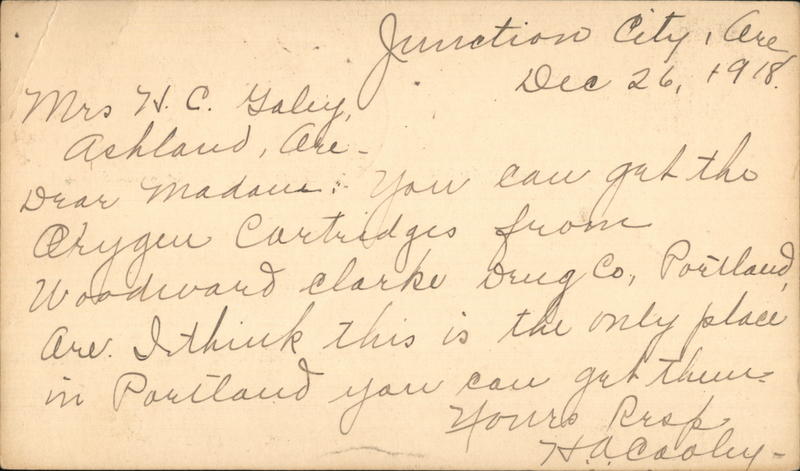 Junction City, Ore
Dec 26, 1918.
Mrs H. C. Galey,
Ashland, Ore-
Dear Madam:- You can get the
Oxygen Cartridges from
Woodward Clarke Drug Co., Portland,
Ore. I think this is the only place
in Portland you can get them-
Yours Resp
H.A. Cooley-